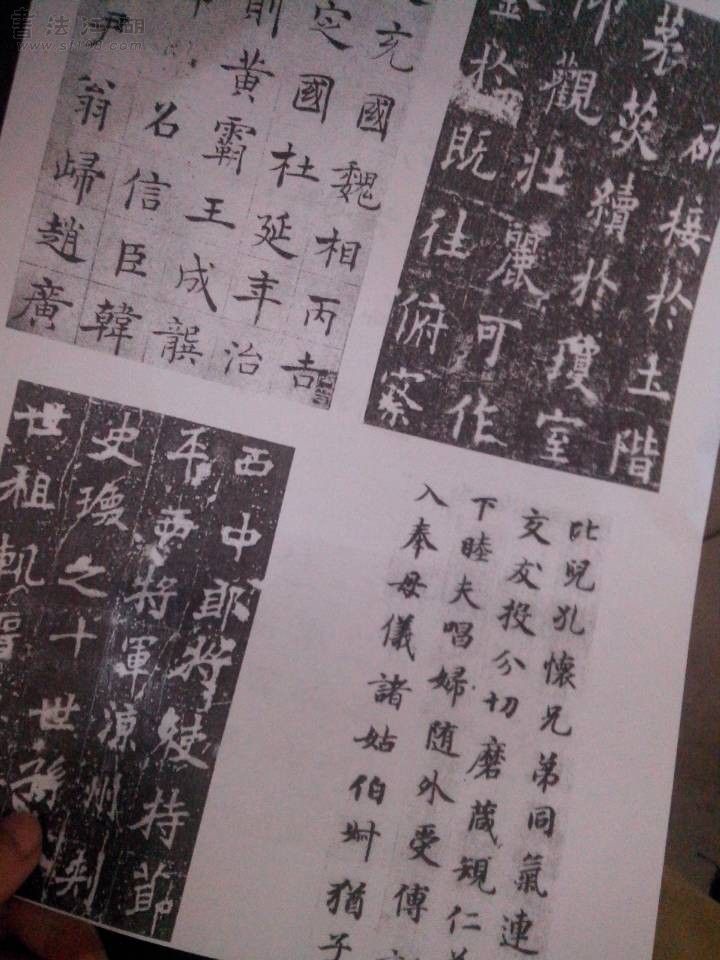 書法江湖
www.sf108.com
充國魏相丙吉
定國杜延年治
則黃霸王成龔
名信臣韓
尹翁歸趙廣
斫接於土階
茨續於瓊室
仰觀壯麗可作
於既往俯察
西中郎將使持節
平西將軍涼州刾
史瓌之十世孫
世祖軌晉
比兒孔懷兄弟同氣連
交友投分切磨葴規仁
下睦夫唱婦随外受傅
入奉母儀諸姑伯叔猶子